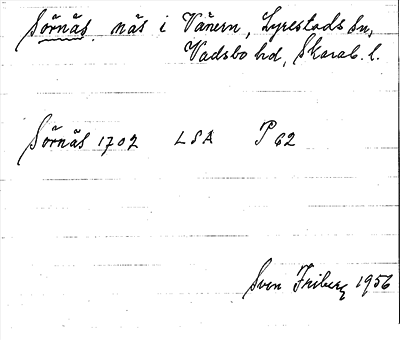 Sörnäs, näs i Vänern, Lyrestads sn,
Vadsbo hd, Skarab. l.
Sörnäs 1702 LSA P 62
Sven Friberg 1956